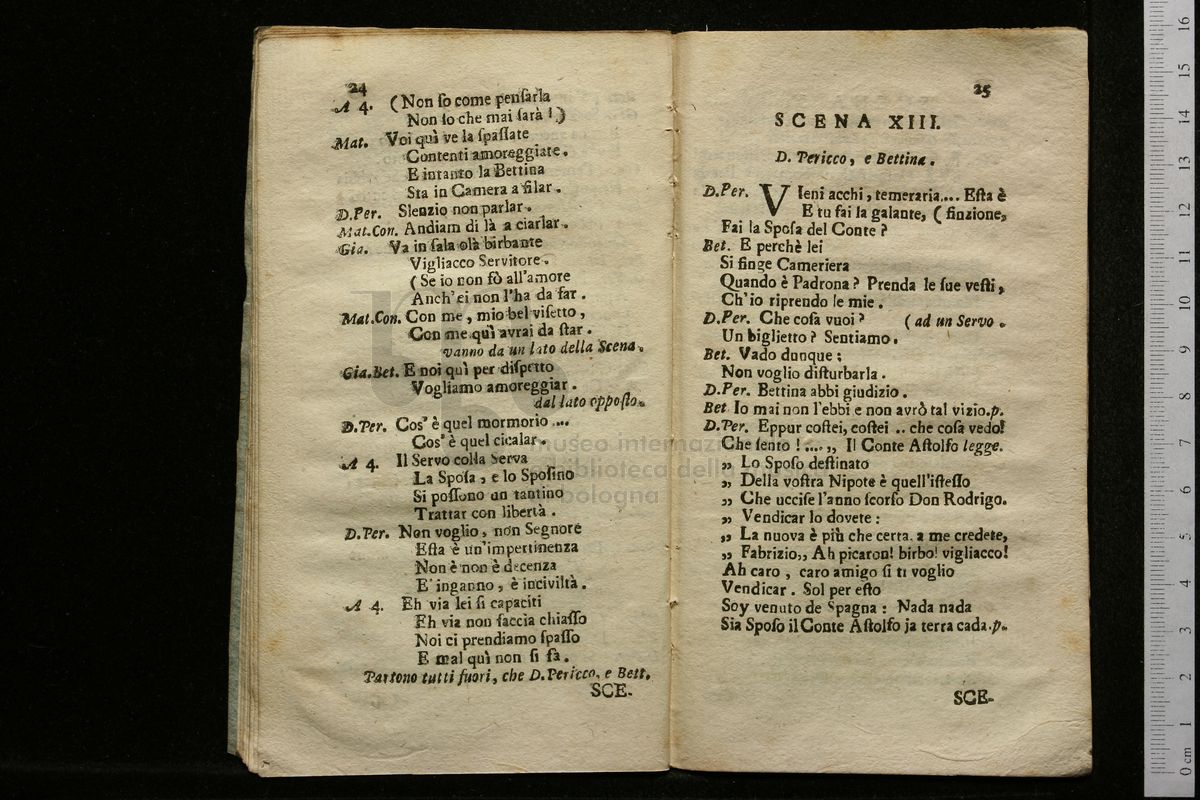 24
A 4. (Non ſo come penſarla
Non ſo che mai ſarà!)
Mat. Voi quì ve la ſpaſſate
Contenti amoreggiate.
E intanto la Bettina
Sta in Camera a filar.
D.Per. Slenzio non parlar.
Mat.Con. Andiam di là a ciarlar.
Gia. Va in ſala olà birbante
Vigliacco Servitore.
(Se io non fò all'amore
Anch'ei non l'ha da far.
Mat.Con. Con me, mio bel viſetto,
Con me quì avrai da ſtar.
vanno da un lato della Scena.
Gia.Bet. E noi quì per diſpetto
Vogliamo amoreggiar.
dal lato oppoſto.
D.Per. Cos' è quel mormorio ....
Cos' è quel cicalar.
A 4. Il Servo colla Serva
La Spoſa, e lo Spoſino
Si poſſono un tantino
Trattar con libertà.
D.Per. Non voglio, non Segnore
Eſta è un'impertinenza
Non è non è decenza
E' inganno, è inciviltà.
A 4. Eh via lei ſi capaciti
Eh via non faccia chiaſſo
Noi ci prendiamo ſpaſſo
E mal quì non ſi fa.
Partono tutti fuori, che D.Pericco, e Bett.
SCE-
25
SCENA XIII.
D. Pericco, e Bettina.
D.Per. VIeni acchi, temeraria.... Eſta è
E tu fai la galante, ( finzione,
Fai la Spoſa del Conte?
Bet. E perchè lei
Si finge Cameriera
Quando è Padrona? Prenda le ſue veſti,
Ch'io riprendo le mie.
D.Per. Che coſa vuoi? (ad un Servo.
Un biglietto? Sentiamo.
Bet. Vado dunque;
Non voglio diſturbarla.
D.Per. Bettina abbi giudizio.
Bet Io mai non l'ebbi e non avrò tal vizio.p.
D.Per. Eppur coſtei, coſtei .. che coſa vedo!
Che ſento!....,, Il Conte Aſtolfo legge.
,, Lo Spoſo deſtinato
,, Della voſtra Nipote è quell'iſteſſo
,, Che ucciſe l'anno ſcorſo Don Rodrigo.
,, Vendicar lo dovete:
,, La nuova è più che certa, a me credete,
,, Fabrizio,, Ah picaron! birbo! vigliacco!
Ah caro, caro amigo ſi ti voglio
Vendicar. Sol per eſto
Soy venuto de Spagna: Nada nada
Sia Spoſo il Conte Aſtolfo ja terra cada.p.
SCE-
museo internaz
biblioteca della
bologna
0 cm 1 2 3 4 5 6 7 8 9 10 11 12 13 14 15 16